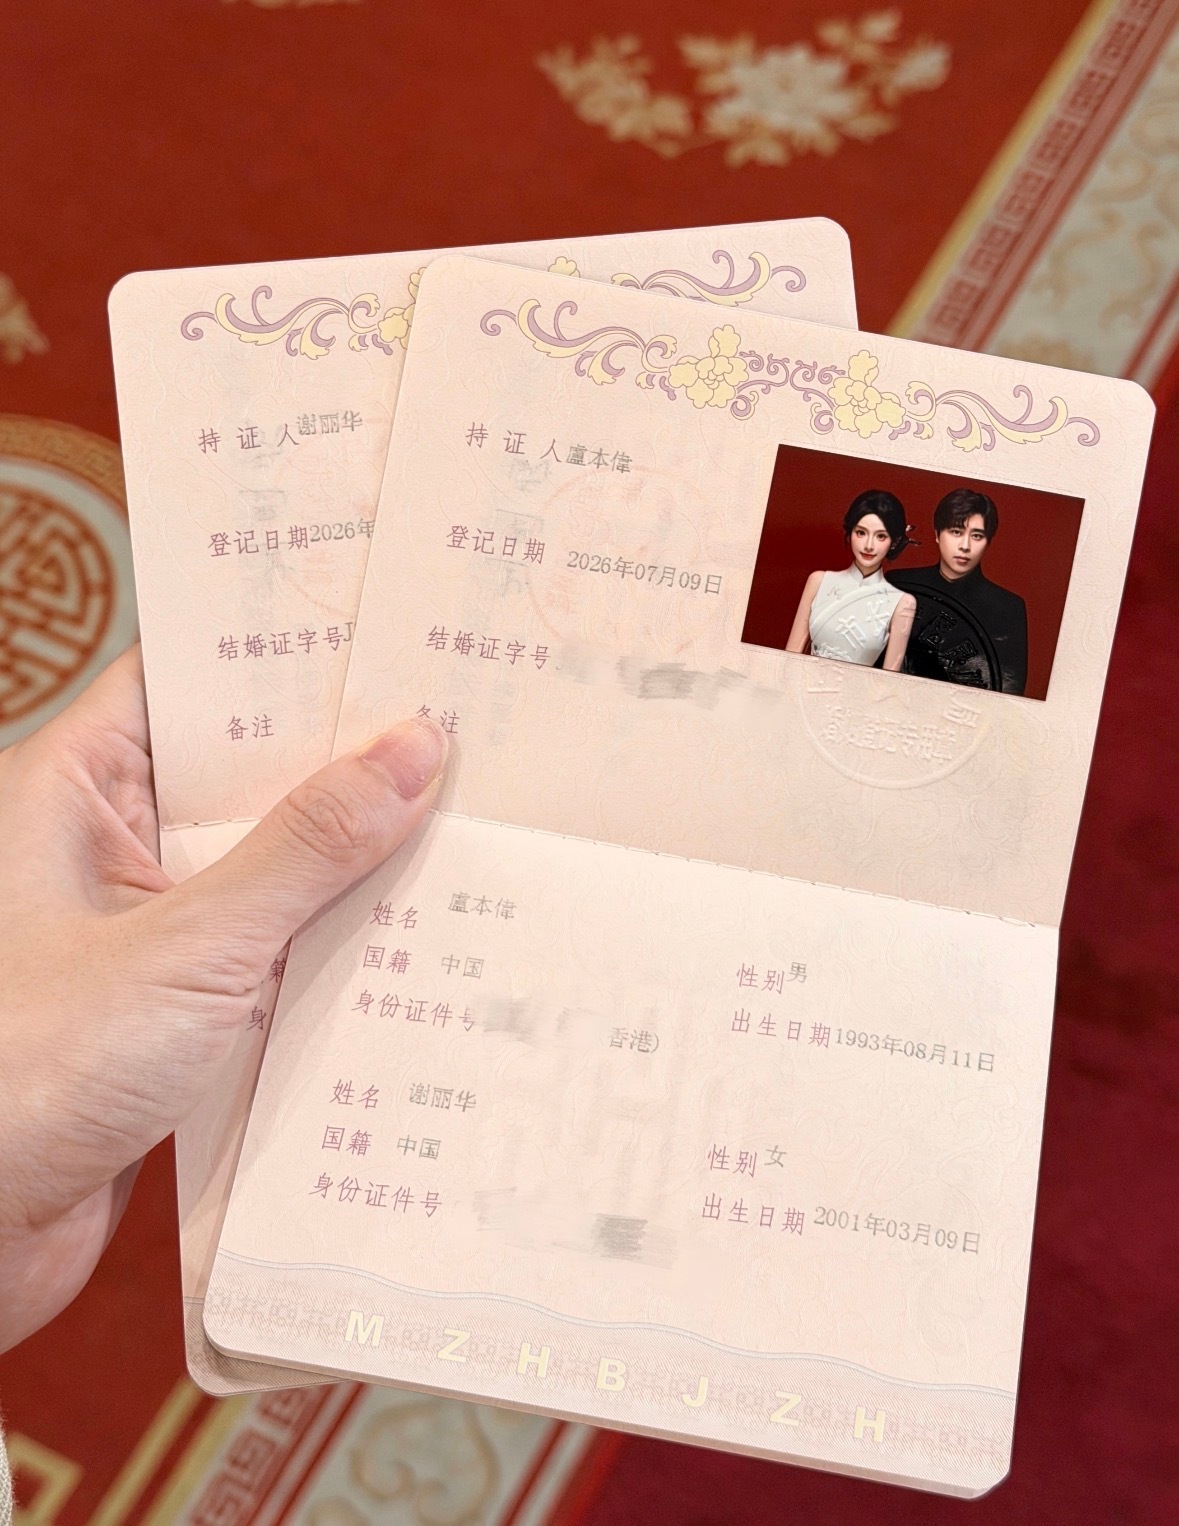 持证人谢丽华
登记日期2026年
结婚证字号J
备注
籍
身
持证人盧本偉
登记日期 2026年07月09日
结婚证字号
备注
婚姻登记专用章
姓名 盧本偉
国籍 中国 性别男
身份证件号 香港) 出生日期1993年08月11日
姓名 谢丽华
国籍 中国 性别女
身份证件号 出生日期2001年03月09日
MZHBJZH